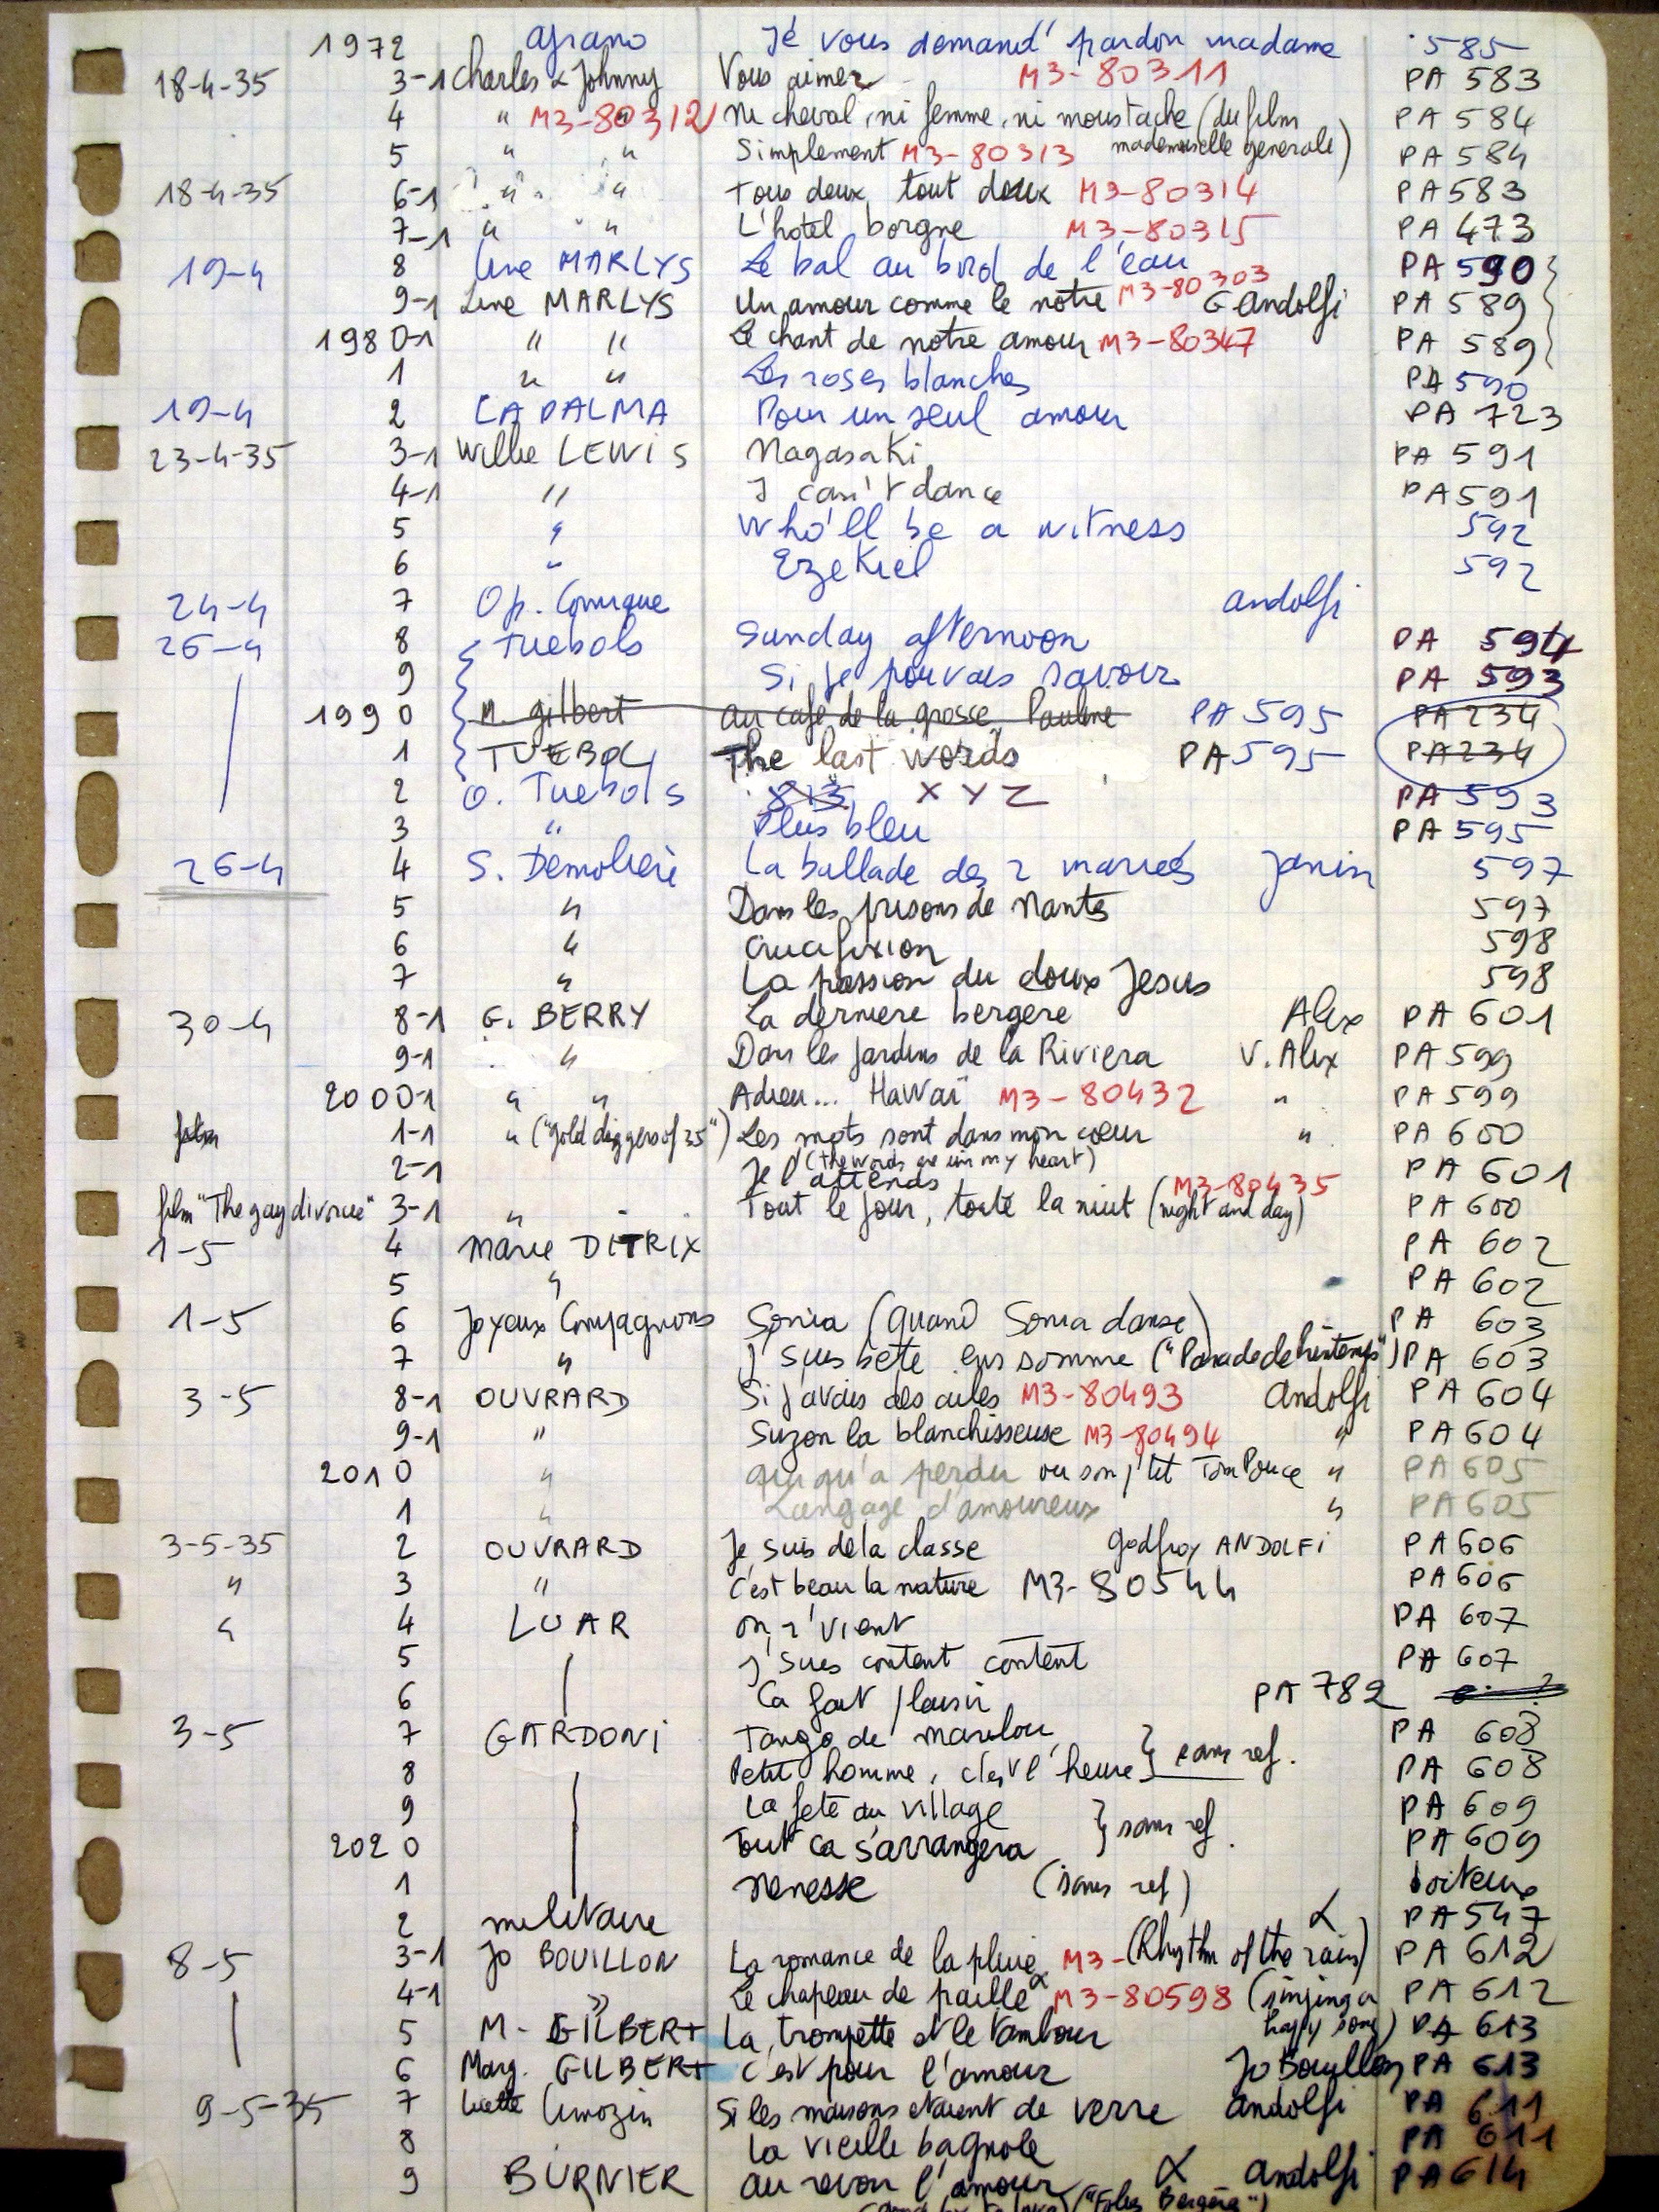 1972 agrano Je vous demand' pardon madame 585
18-4-35 3-1 Charles & Johnny Vous aimer M3-80311 PA 583
4 " M3-80312 " Ni cheval, ni femme, ni moustache (du film PA 584
mademoiselle generale)
5 " " Simplement M3-80313 PA 584
18-4-35 6-1 " " Tous deux, tout doux M3-80314 PA 583
7-1 " " L'hotel borgne M3-80315 PA 473
19-4 8 Line MARLYS Le bal au bord de l'eau PA 590
9-1 Line MARLYS Un amour comme le notre M3-80303 G andolfi PA 589
1980-1 " " Le chant de notre amour M3-80347 PA 589
1 " " Les roses blanches PA 590
19-4 2 LA PALMA Pour un seul amour PA 723
23-4-35 3-1 Willie LEWIS Nagasaki PA 591
4-1 " I can't dance PA 591
5 " Who'll be a witness 592
6 " Ezekiel 592
24-4 7 Op. Comique andolfi
26-4 8 Tuebols Sunday afternoon PA 594
9 Si je pouvais savoir PA 593
1990 M. gilbert au café de la grosse Pauline PA 595 PA 234
1 TUEBOL The last words PA 595 PA 234
2 O. Tuebols 813 XYZ PA 593
3 " Plus bleu PA 595
26-4 4 S. Demolière La ballade des 2 mariés Janin 597
5 " Dans les prisons de Nantes 597
6 " Crucifixion 598
7 " La passion du doux Jesus 598
30-4 8-1 G. BERRY La derniere bergere Alix PA 601
9-1 " Dans les jardins de la Riviera V. Alix PA 599
2000-1 " " Adieu... Hawaï M3-80432 " PA 599
film 1-1 " ("gold diggers of 35") Les mots sont dans mon coeur " PA 600
(the words are in my heart)
2-1 Je l'attends PA 601
film "The gay divorcee" 3-1 " Tout le jour, toute la nuit (night and day) M3-80435 PA 600
1-5 4 Marie DITRIX PA 602
5 " PA 602
1-5 6 Joyeux Compagnons Sonia (quand Sonia danse) PA 603
7 " J'suis bete en somme ("Parade de Printemps") PA 603
3-5 8-1 OUVRARD Si j'avais des ailes M3-80493 andolfi PA 604
9-1 " Suzon la blanchisseuse M3-80494 " PA 604
2010 " Qui qu'a perdu ou son p'tit Tom Pouce " PA 605
1 " Langage d'amoureux " PA 605
3-5-35 2 OUVRARD Je suis de la classe godfroy ANDOLFI PA 606
" 3 " c'est beau la nature M3-80544 PA 606
" 4 LUAR on r'vient PA 607
5 J'suis content content PA 607
6 Ca fait plaisir PA 782
3-5 7 GARDONI Tango de marilou } sans ref. PA 608
8 Petit homme, c'est l'heure PA 608
9 La fete au village } sans ref. PA 609
2020 Tout ca s'arrangera PA 609
1 Nenesse (sans ref) boiteux
2 militaire α PA 547
8-5 3-1 Jo BOUILLON La romance de la pluie M3- (Rhythm of the rain) PA 612
4-1 " Le chapeau de paille α M3-80598 (singing a PA 612
happy song)
5 M. GILBERT La trompette et le tambour PA 613
6 Marg. GILBERT C'est pour l'amour Jo Bouillon PA 613
9-5-35 7 Limozin Si les maisons etaient de verre andolfi PA 611
8 La vieille bagnole PA 611
9 BURNIER au revoir l'amour α andolfi PA 614
("Folies Bergère")